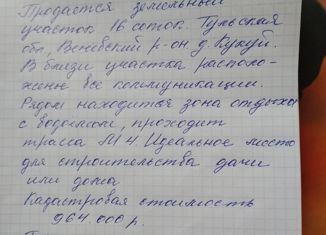 Продается земельный
участок 16 соток Тульская
обл, Веневский р-он д. Кукуй.
В близи участка располо-
жены все коммуникации.
Рядом находится зона отдыха
с водоемом, проходит
трасса М4 Идеальное место
для строительства дачи
или дома
Кадастровая стоимость
964.000 р.